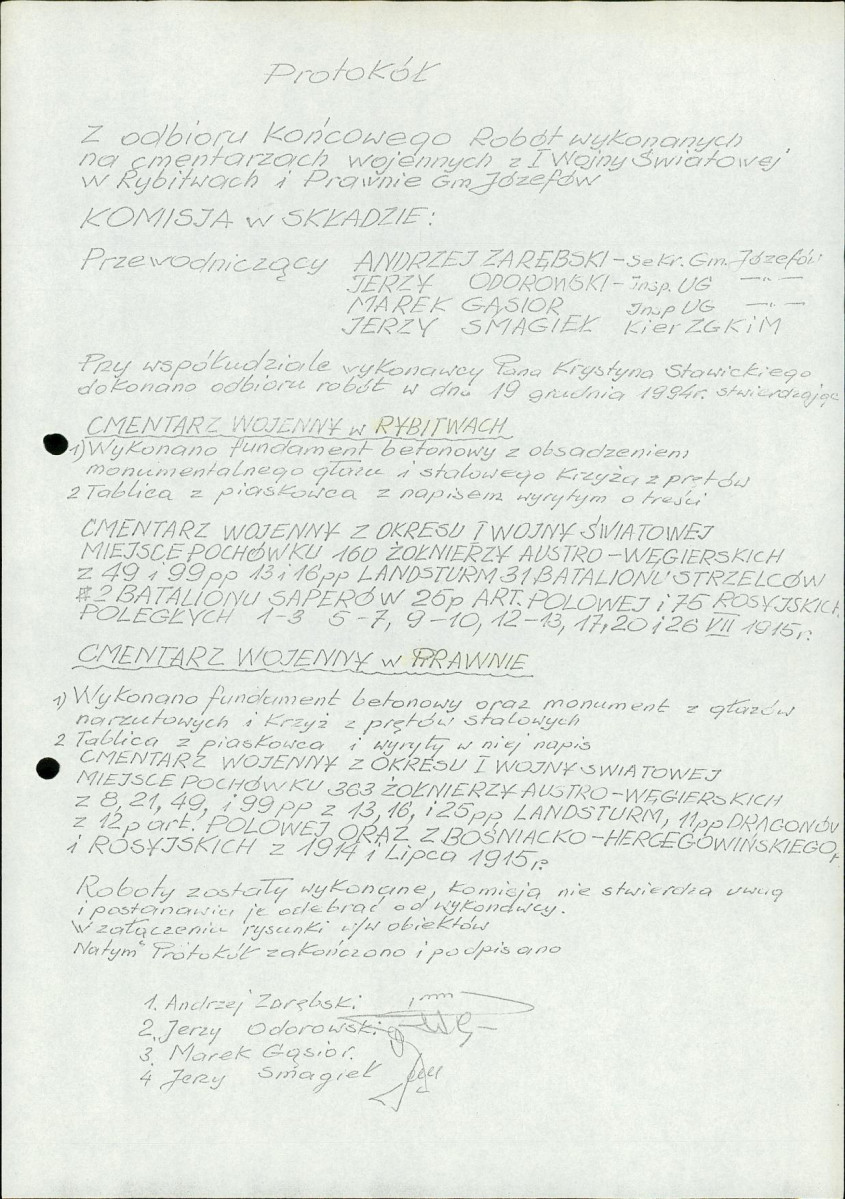 Protokół
Z odbioru Końcowego Robót wykonanych
na cmentarzach wojennych z I Wojny Światowej
w Rybitwach i Prawnie Gm Józefów
KOMISJA W SKŁADZIE:
Przewodniczący ANDRZEJ ZARĘBSKI – Sekr. Gm. Józefów
JERZY ODOROWSKI – Insp. UG —"—
MAREK GĄSIOR Insp UG —"—
JERZY SMAGIEŁ Kier ZGKiM
Przy współudziale wykonawcy Pana Krystyna Stawickiego
dokonano odbioru robót w dniu 19 grudnia 1994r. stwierdzając
CMENTARZ WOJENNY W RYBITWACH
1) Wykonano fundament betonowy z obsadzeniem
monumentalnego głazu i stalowego Krzyża z prętów
2 Tablica z piaskowca z napisem wyrytym o treści
CMENTARZ WOJENNY Z OKRESU I WOJNY ŚWIATOWEJ
MIEJSCE POCHÓWKU 160 ŻOŁNIERZY AUSTRO-WĘGIERSKICH
z 49 i 99pp 13 i 16pp LANDSTURM 31 BATALIONU STRZELCÓW
2 BATALIONU SAPERÓW 25p ART. POLOWEJ i 75 ROSYJSKICH
POLEGŁYCH 1-3 5-7, 9-10, 12-13, 17, 20 i 26 VII 1915r.
CMENTARZ WOJENNY W PRAWNIE
1) Wykonano fundament betonowy oraz monument z głazów
narzutowych i Krzyż z prętów stalowych
2 Tablica z piaskowca i wyryty w niej napis
CMENTARZ WOJENNY Z OKRESU I WOJNY SWIATOWEJ
MIEJSCE POCHÓWKU 363 ŻOŁNIERZY AUSTRO-WĘGIERSKICH
z 8, 21, 49, i 99pp z 13, 16, i 25pp LANDSTURM, 11pp DRAGONÓW
z 12p art. POLOWEJ ORAZ Z BOŚNIACKO-HERCEGOWIŃSKIEGO,
i ROSYJSKICH z 1914 i Lipca 1915r.
Roboty zostały wykonane, komisja nie stwierdza uwag
i postanawia je odebrać od wykonawcy.
W załączeniu rysunki w/w obiektów
Na tym Protokół zakończono i podpisano
1. Andrzej Zarębski
2. Jerzy Odorowski
3. Marek Gąsior.
4 Jerzy Smagieł